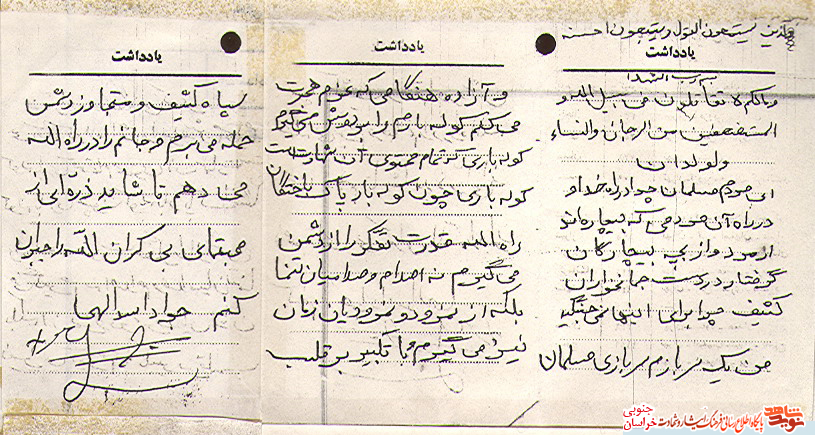 والذین یستمعون القول و یتبعون احسنه
یادداشت
به رب الشهدا
ومالکم لا تقاتلون فی سبیل الله و
المستضعفین من الرجال والنساء
ولولدان
ای مردم مسلمان چرا در راه خدا و
در راه آن مردمی که بیچاره‌اند
از مرد و از بچه بیچارگان
گرفتار در دست جهانخواران
کثیف چرا برای اینها نمی‌جنگید
من یک سربازم سربازی مسلمان
یادداشت
و آزاده هنگامی که عزم هجرت
می کنم کوله بارم را بر دوش می‌گیرم
کوله باری که تمام محتوی آن شهادت است
کوله باری چون کوله بار پاک باختگان
راه الله قدرت تفکر را از دشمن
می گیرم نه صدام و صدامیان تنها
بلکه از نمرود و نمرودیان زمان
نیز می گیرم و با تکبیر بر قلب
یادداشت
سپاه کثیف و متجاوز دشمن
حمله می برم و جانم را در راه الله
می دهم تا شاید ذره‌ای از
نعمتهای بی کران الله را جبران
کنم جواد اسدالهی
نوید شاهد
پایگاه اطلاع رسانی فرهنگ ایثار و شهادت
خراسان جنوبی